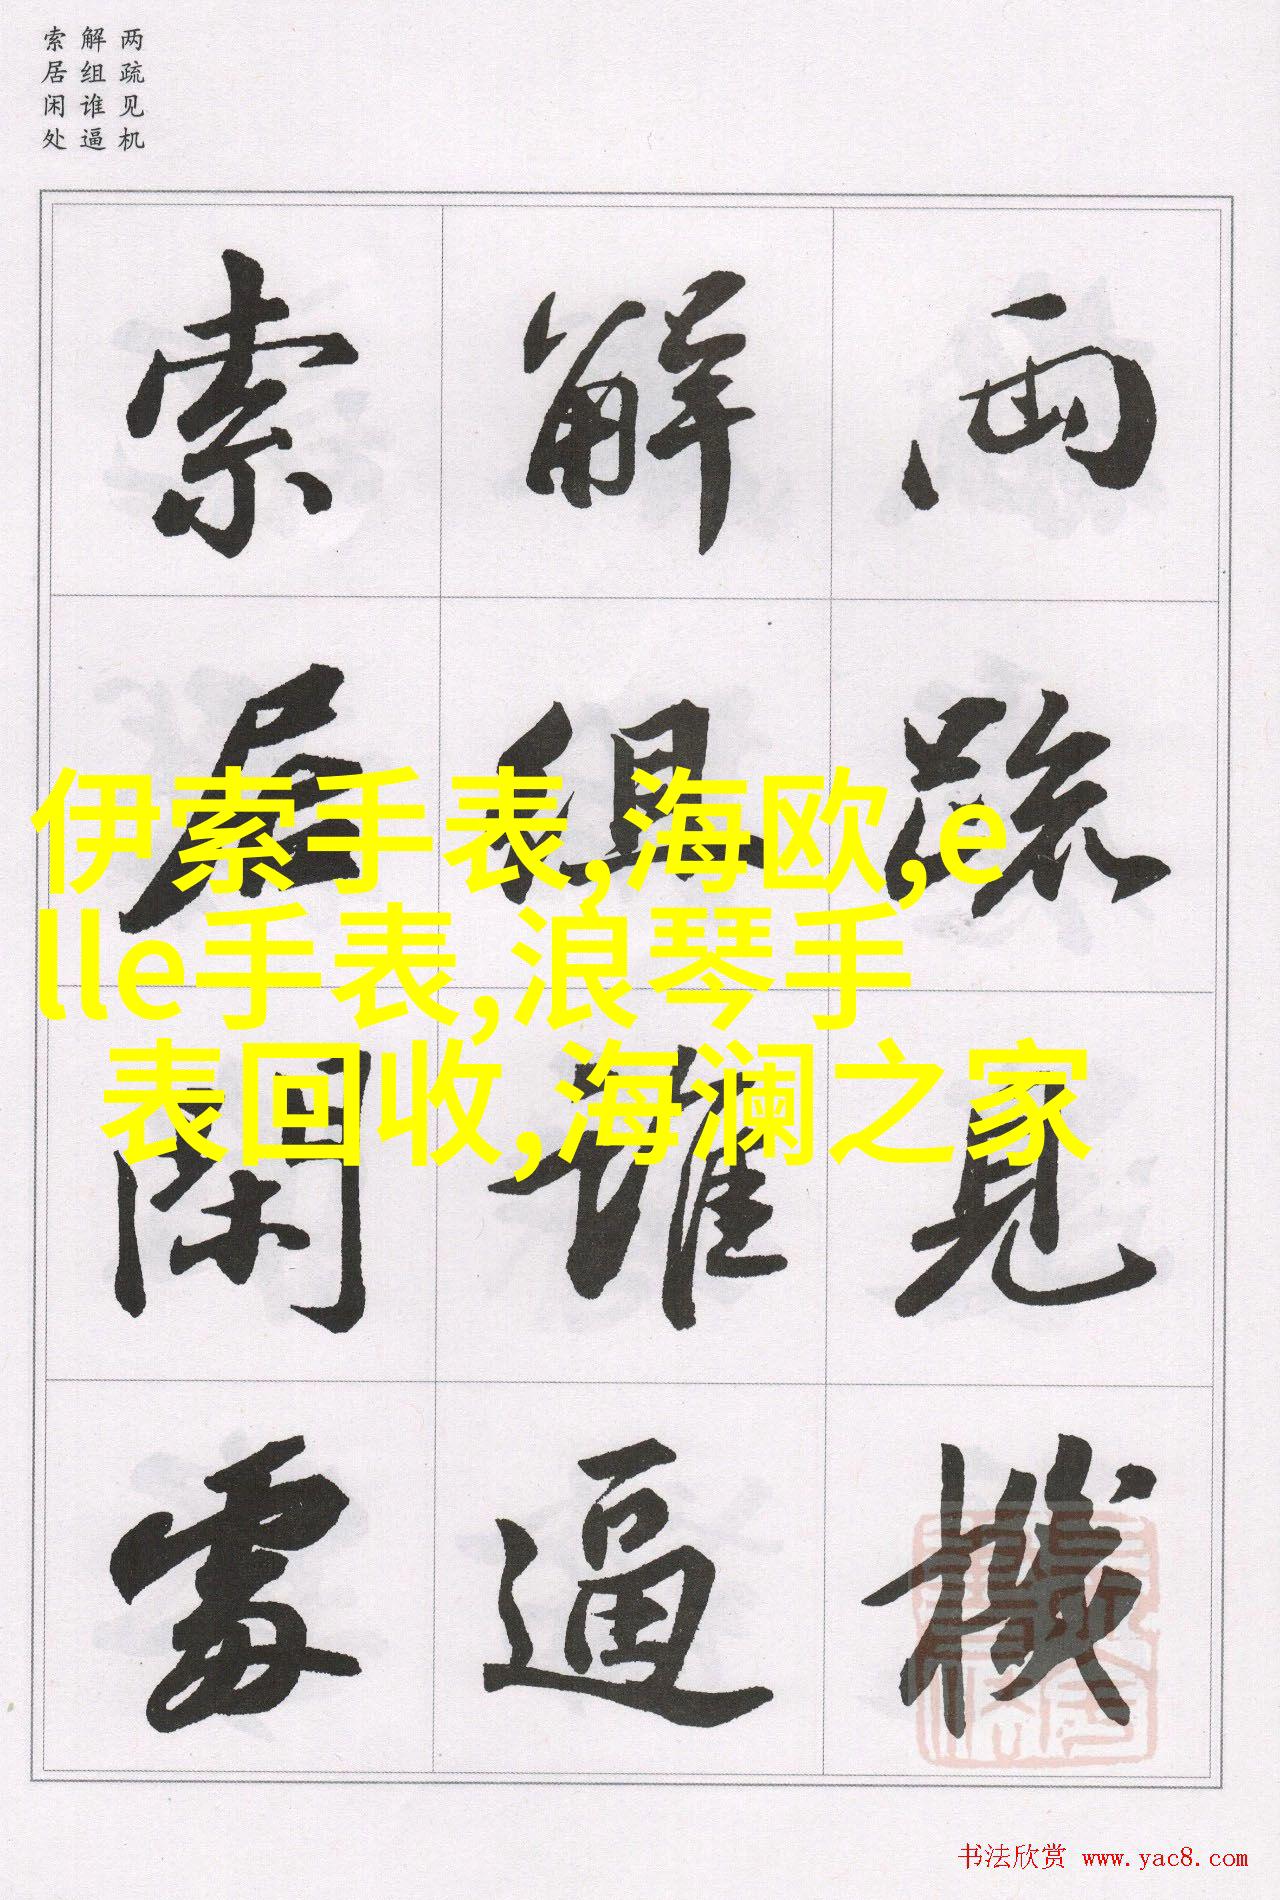 两疏见机
解组谁逼
索居闲处
兩疏見機
解組誰逼
索居閑處
伊索手表,海欧,e
lle手表,浪琴手
表回收,海澜之家
书法欣赏 www.yac8.com